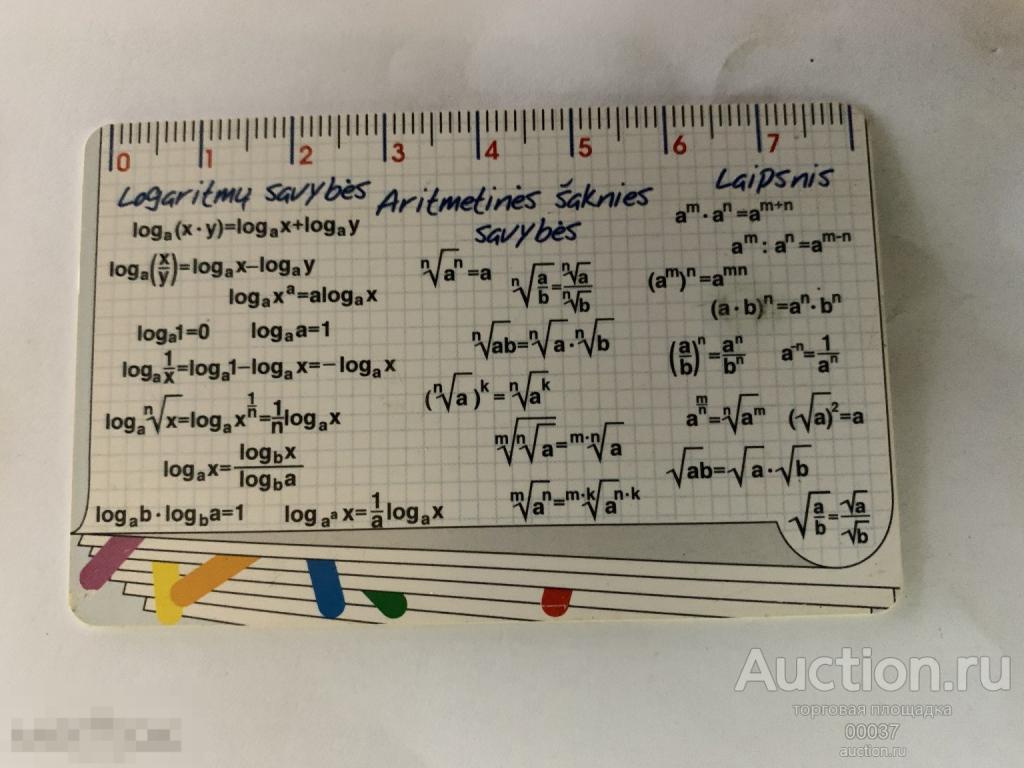 0 1 2 3 4 5 6 7
Logaritmų savybės
logₐ(x·y)=logₐx+logₐy
logₐ(x/y)=logₐx–logₐy
logₐxᵃ=alogₐx
logₐ1=0 logₐa=1
logₐ1/x=logₐ1–logₐx=–logₐx
logₐⁿ√x=logₐx^(1/n)=1/n logₐx
logₐx=log_b x/log_b a
logₐb·log_b a=1 log_(aᵃ) x=1/a logₐx
Aritmetinės šaknies
savybės
ⁿ√aⁿ=a ⁿ√(a/b)=ⁿ√a/ⁿ√b
ⁿ√ab=ⁿ√a·ⁿ√b
(ⁿ√a)ᵏ=ⁿ√aᵏ
ᵐ√(ⁿ√a)=ᵐ·ⁿ√a
ᵐ√aⁿ=ᵐ·ᵏ√aⁿ·ᵏ
Laipsnis
aᵐ·aⁿ=aᵐ⁺ⁿ
aᵐ:aⁿ=aᵐ⁻ⁿ
(aᵐ)ⁿ=aᵐⁿ
(a·b)ⁿ=aⁿ·bⁿ
(a/b)ⁿ=aⁿ/bⁿ a⁻ⁿ=1/aⁿ
a^(m/n)=ⁿ√aᵐ (√a)²=a
√ab=√a·√b
√(a/b)=√a/√b
Auction.ru
торговая площадка
00037
auction.ru